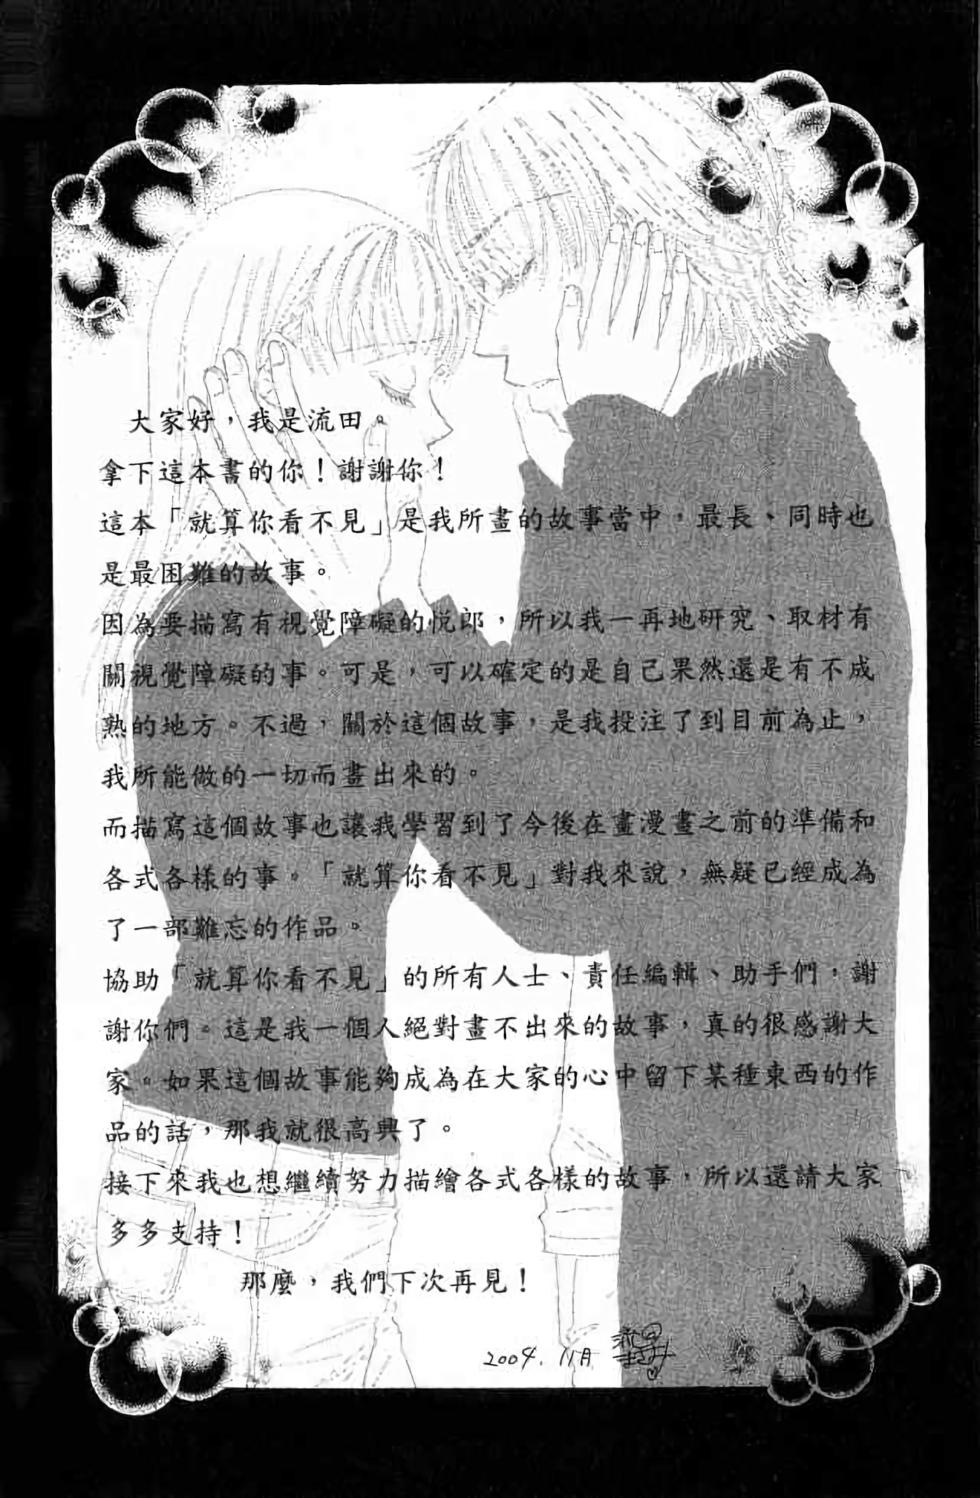 大家好，我是流田。
拿下這本書的你！謝謝你！
這本「就算你看不見」是我所畫的故事當中，最長、同時也
是最困難的故事。
因為要描寫有視覺障礙的悅郎，所以我一再地研究、取材有
關視覺障礙的事。可是，可以確定的是自己果然還是有不成
熟的地方。不過，關於這個故事，是我投注了到目前為止，
我所能做的一切而畫出來的。
而描寫這個故事也讓我學習到了今後在畫漫畫之前的準備和
各式各樣的事。「就算你看不見」對我來說，無疑已經成為
了一部難忘的作品。
協助「就算你看不見」的所有人士、責任編輯、助手們，謝
謝你們。這是我一個人絕對畫不出來的故事，真的很感謝大
家。如果這個故事能夠成為在大家的心中留下某種東西的作
品的話，那我就很高興了。
接下來我也想繼續努力描繪各式各樣的故事，所以還請大家
多多支持！
那麼，我們下次再見！
2004. 11月